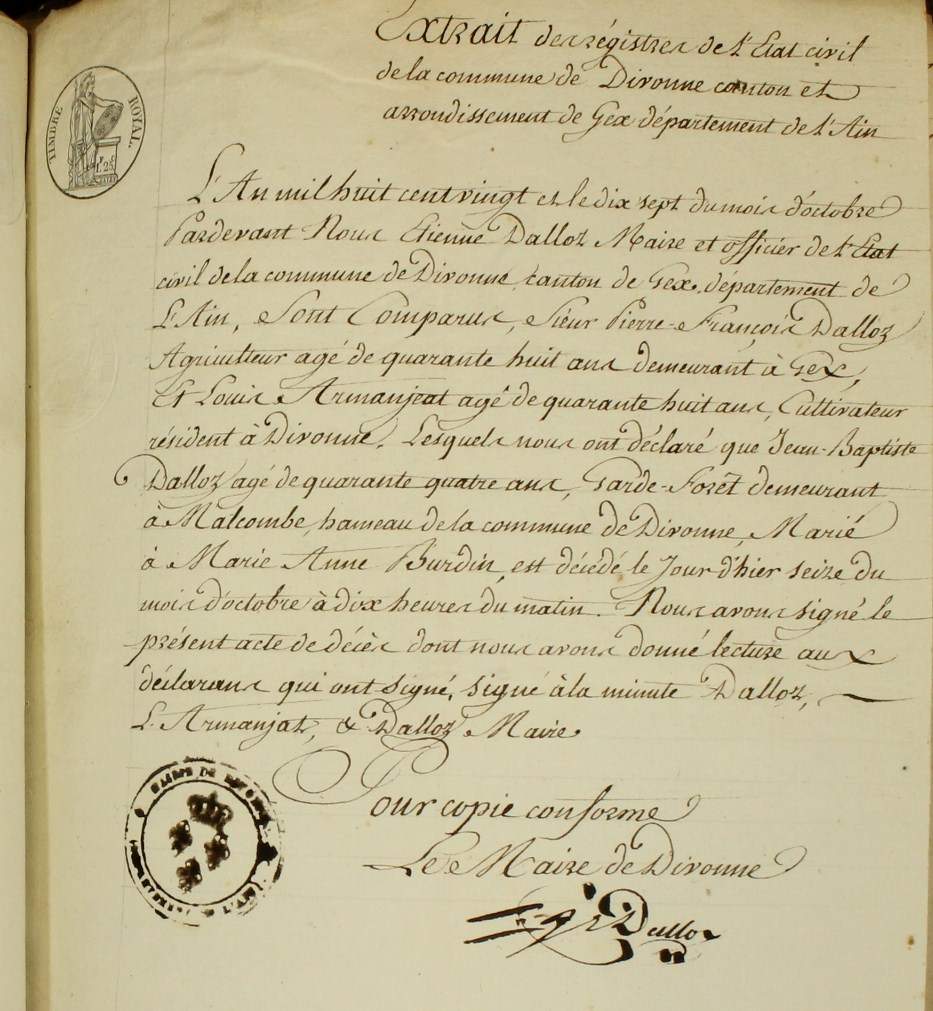 Extrait des régistres de l'Etat civil
de la commune de Divonne canton et
arrondissement de Gex département de l'Ain
TIMBRE ROYAL.
L'An mil huit cent vingt et le dix sept du mois d'octobre
Pardevant Nous Etienne Dalloz Maire et officier de l'Etat
civil de la commune de Divonne, canton de Gex, département de
L'Ain, Sont Comparus, Sieur Pierre-François Dalloz
Agriculteur agé de quarante huit ans demeurant à Gex,
Et Louis Armanjeat agé de quarante huit ans, Cultivateur
résident à Divonne. Lesquels nous ont déclaré que Jean-Baptiste
Dalloz agé de quarante quatre ans, Garde-Forêt demeurant
à Malcombe, hameau de la commune de Divonne, Marié
à Marie Anne Burdin, est décédé le Jour d'hier seize du
mois d'octobre à dix heures du matin. Nous avons signé le
présent acte de décès dont nous avons donné lecture aux
déclarans qui ont signé, signé à la minute Dalloz,
L. Armanjat, & Dalloz Maire.
Pour copie conforme
Le Maire de Divonne
MAIRIE DE
L'AIN
Dalloz